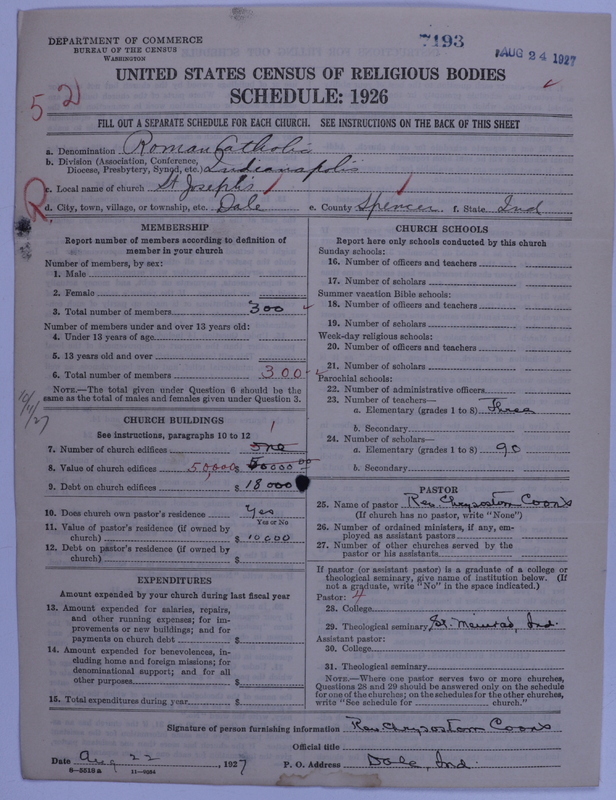 DEPARTMENT OF COMMERCE
BUREAU OF THE CENSUS
WASHINGTON
7193
AUG 24 1927
UNITED STATES CENSUS OF RELIGIOUS BODIES
SCHEDULE: 1926
52
FILL OUT A SEPARATE SCHEDULE FOR EACH CHURCH. SEE INSTRUCTIONS ON THE BACK OF THIS SHEET
a. Denomination Roman Catholic
b. Division (Association, Conference, Diocese, Presbytery, Synod, etc.) Indianapolis
c. Local name of church St Joseph's
R
d. City, town, village, or township, etc. Dale e. County Spencer f. State Ind
MEMBERSHIP
Report number of members according to definition of
member in your church
Number of members, by sex:
1. Male
2. Female
3. Total number of members 300
Number of members under and over 13 years old:
4. Under 13 years of age
5. 13 years old and over
6. Total number of members 300
NOTE.—The total given under Question 6 should be the
same as the total of males and females given under Question 3.
10/4/27
CHURCH BUILDINGS
See instructions, paragraphs 10 to 12
1
7. Number of church edifices one
8. Value of church edifices 50,000 $ 50000 00
9. Debt on church edifices $ 18 000
10. Does church own pastor's residence Yes
Yes or No
11. Value of pastor's residence (if owned by
church) $ 10000
12. Debt on pastor's residence (if owned by
church) $
EXPENDITURES
Amount expended by your church during last fiscal year
13. Amount expended for salaries, repairs,
and other running expenses; for im-
provements or new buildings; and for
payments on church debt $
14. Amount expended for benevolences, in-
cluding home and foreign missions; for
denominational support; and for all
other purposes $
15. Total expenditures during year $
CHURCH SCHOOLS
Report here only schools conducted by this church
Sunday schools:
16. Number of officers and teachers
17. Number of scholars
Summer vacation Bible schools:
18. Number of officers and teachers
19. Number of scholars
Week-day religious schools:
20. Number of officers and teachers
21. Number of scholars
Parochial schools:
22. Number of administrative officers
23. Number of teachers—
a. Elementary (grades 1 to 8) Three
b. Secondary
24. Number of scholars—
a. Elementary (grades 1 to 8) 90
b. Secondary
PASTOR
25. Name of pastor Rev Chrysostom Coons
(If church has no pastor, write "None")
26. Number of ordained ministers, if any, em-
ployed as assistant pastors
27. Number of other churches served by the
pastor or his assistants
If pastor (or assistant pastor) is a graduate of a college or
theological seminary, give name of institution below. (If
not a graduate, write "No" in the space indicated.)
Pastor: 4
28. College
29. Theological seminary St. Meinrad, Ind.
Assistant pastor:
30. College
31. Theological seminary
NOTE.—Where one pastor serves two or more churches,
Questions 28 and 29 should be answered only on the schedule
for one of the churches; on the schedules for the other churches,
write "See schedule for church."
Signature of person furnishing information Rev Chrysostom Coons
Official title
Date Aug 22, 1927 P. O. Address Dale, Ind.
8—5518a 11—9264